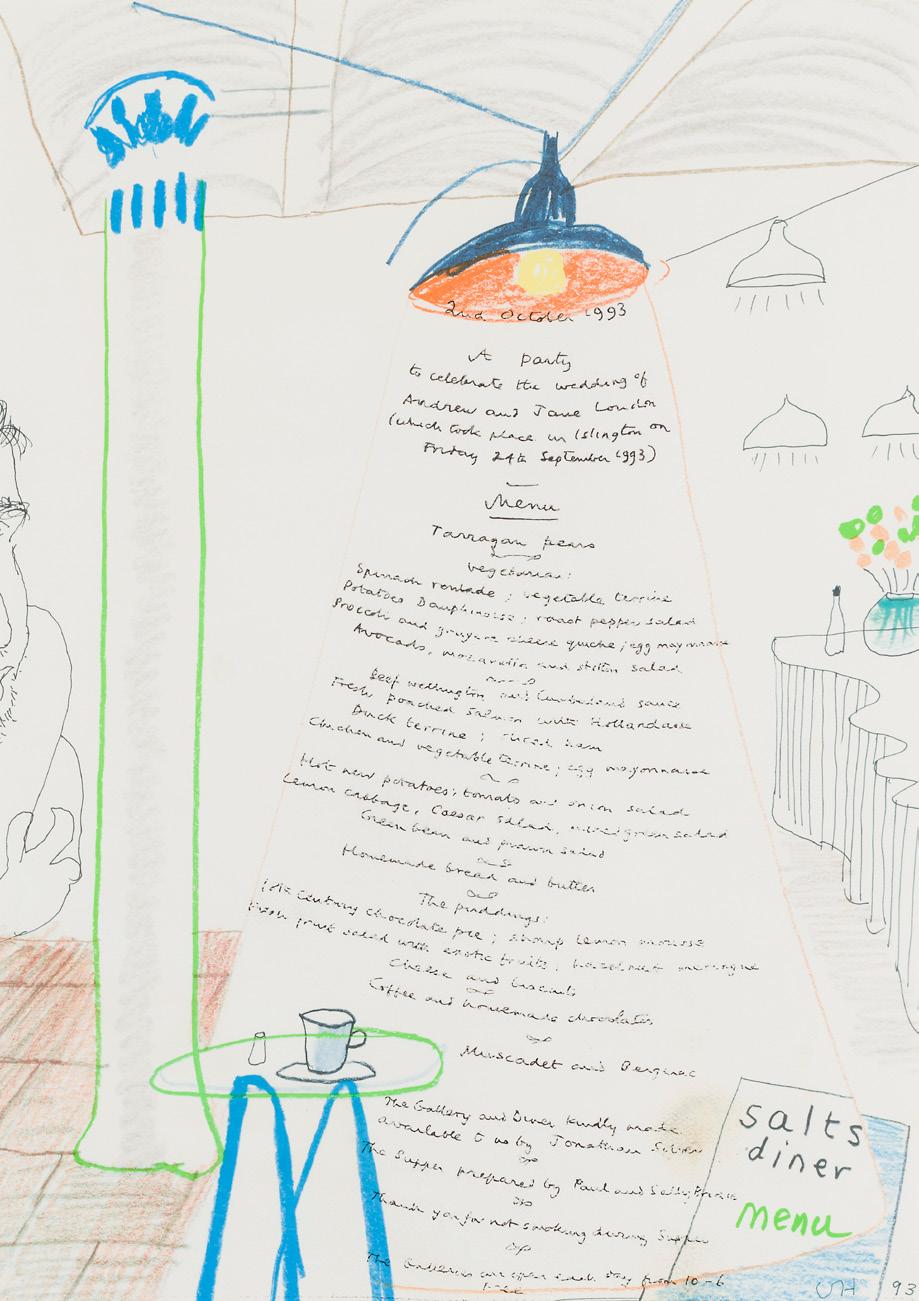 2nd October 1993
A party
to celebrate the wedding of
Andrew and Jane London
(which took place in Islington on
Friday 24th September 1993)
Menu
Tarragan pears
Vegetarian:
Spinach roulade ; vegetable terrine
Potatoes Dauphinoise ; roast pepper salad
Broccoli and gruyere cheese quiche ; egg mayonnaise
Avocado, mozarella and stilton salad
Beef wellington and Cumberland sauce
Fresh poached salmon with Hollandaise
Duck terrine ; sliced ham
Chicken and vegetable terrine ; egg mayonnaise
Hot new potatoes ; tomato and onion salad
Lemon cabbage, Caesar salad, mixed green salad
Green bean and prawn salad
Homemade bread and butter
The puddings:
18th Century chocolate pie ; sharp lemon mousse
Fresh fruit salad with exotic fruits ; hazelnut meringue
Cheese and biscuits
Coffee and homemade chocolates
Muscadet and Bergerac
The Gallery and Diner kindly made
available to us by Jonathan Silver
The Supper prepared by Paul and Sally
Thank you for not smoking during Supper
The Galleries are open each day from 10-6
free
salts
diner
menu
DH 93